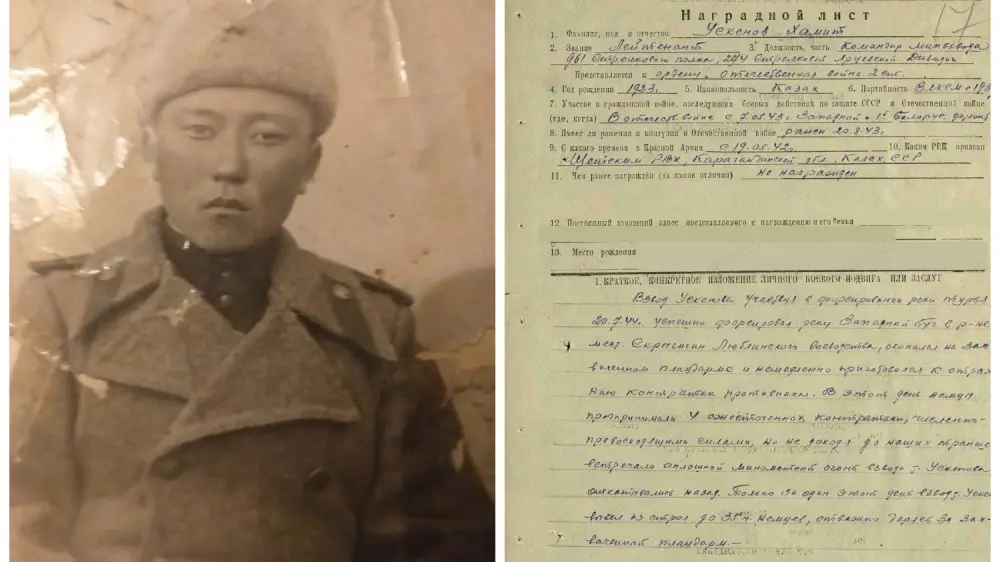 17
Наградной лист
1. Фамилия, имя и отчество Ускенов Хамит
2. Звание Лейтенант 3. Должность, часть Командир минвзвода
961 Стрелкового полка, 274 Стрелковой Ярцевской Дивизии
Представляется к ордену „Отечественная война 2 ст.
4. Год рождения 1923г. 5. Национальность Казах 6. Партийность
7. Участие в гражданской войне, последующих боевых действиях по защите СССР и Отечественной войне
(где, когда) В отечествен. войне с 7.05.43г. Западной 1й Белорус. фронт
8. Имеет ли ранения и контузии в Отечественной войне ранен 20.8.43г.
9. С какого времени в Красной Армии с 19.05.42г. 10. Каким РВК призван
РВК, Карагандинской обл., Казах. ССР
11. Чем ранее награжден (за какие отличия) не награжден
12 Постоянный домашний адрес представляемого к награждению и его семьи
13. Место рождения
I. КРАТКОЕ, КОНКРЕТНОЕ ИЗЛОЖЕНИЕ ЛИЧНОГО БОЕВОГО ПОДВИГА ИЛИ ЗАСЛУГ
Взвод Ускенова участвуя в форсировании реки
20.7.44г. успешно форсировал реку Западной Буг в р-не
мест. Люблинского воеводства, окопался на зах-
ваченном плацдарме и немедленно приготовился к отра
нию контратак противника. В этот день немцы
предпринимали 4 ожесточенных контратаки, численно-
превосходящими силами, но не доходя до наших транше
встречали сплошной минометной огонь взвода т. Ускенова
откатывались назад. Только за один этот день взвод т. Ускен
вывел из строя до 35ти немцев, отважно дерясь за зах-
ваченный плацдарм.—